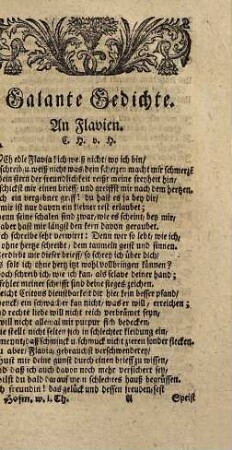 Galante Gedichte.
An Flavien.
C. H. v. H.
Ch edle Flavia! ich weiß nicht/ wo ich bin/
schreib/ u. weiß nicht was dein schertzen macht mir schmertz
ein stern der freundlichkeit reißt meine freyheit hin/
schickst mir einen brieff/ und greiffst mir nach dem hertzen.
ch ein vergebner griff! du hast es ja bey dir/
mir ist nur davon ein kleiner rest erlaubet;
enn seine schalen sind zwar/ wie es scheint/ bey mir/
aber hast mir längst den kern davon geraubet.
ch schreibe sehr verwirrt: Denn wer so lebt/ wie ich/
ohne hertze schreibt/ dem taumeln geist und sinnen.
erdirbt nur dieser brieff/ so schrey ich über dich/
s solt ich ohne hertz ihn wohl vollbringen können?
och schreib ich/ wie ich kan/ als sclave deiner hand;
fehler meiner schrifft sind deine sieges zeichen.
leich Critons dienstbarkeit dir hier kein besser pfand/
reich ein schwacher kan nicht/ was er will/ erreichen;
nd rechte liebe will nicht reich verbrämet seyn/
will nicht allemal mit purpur sich bedecken/
ie stellt nicht selten sich in schlechter kleidung ein/
meynt/ daß schminck u. schmuck nicht zieren sonder flecken.
u aber/ Flavia/ gebrauchst verschwendrey/
hust mir deine gunst durch einen brieff zu wissen/
daß ich mich auch davon noch mehr versichert sey/
ilst du bald darauf mein schlechtes hauß begrüssen.
h freundin! das gelück und dessen freudenfest
Hofm. w. I. Th. A Speist